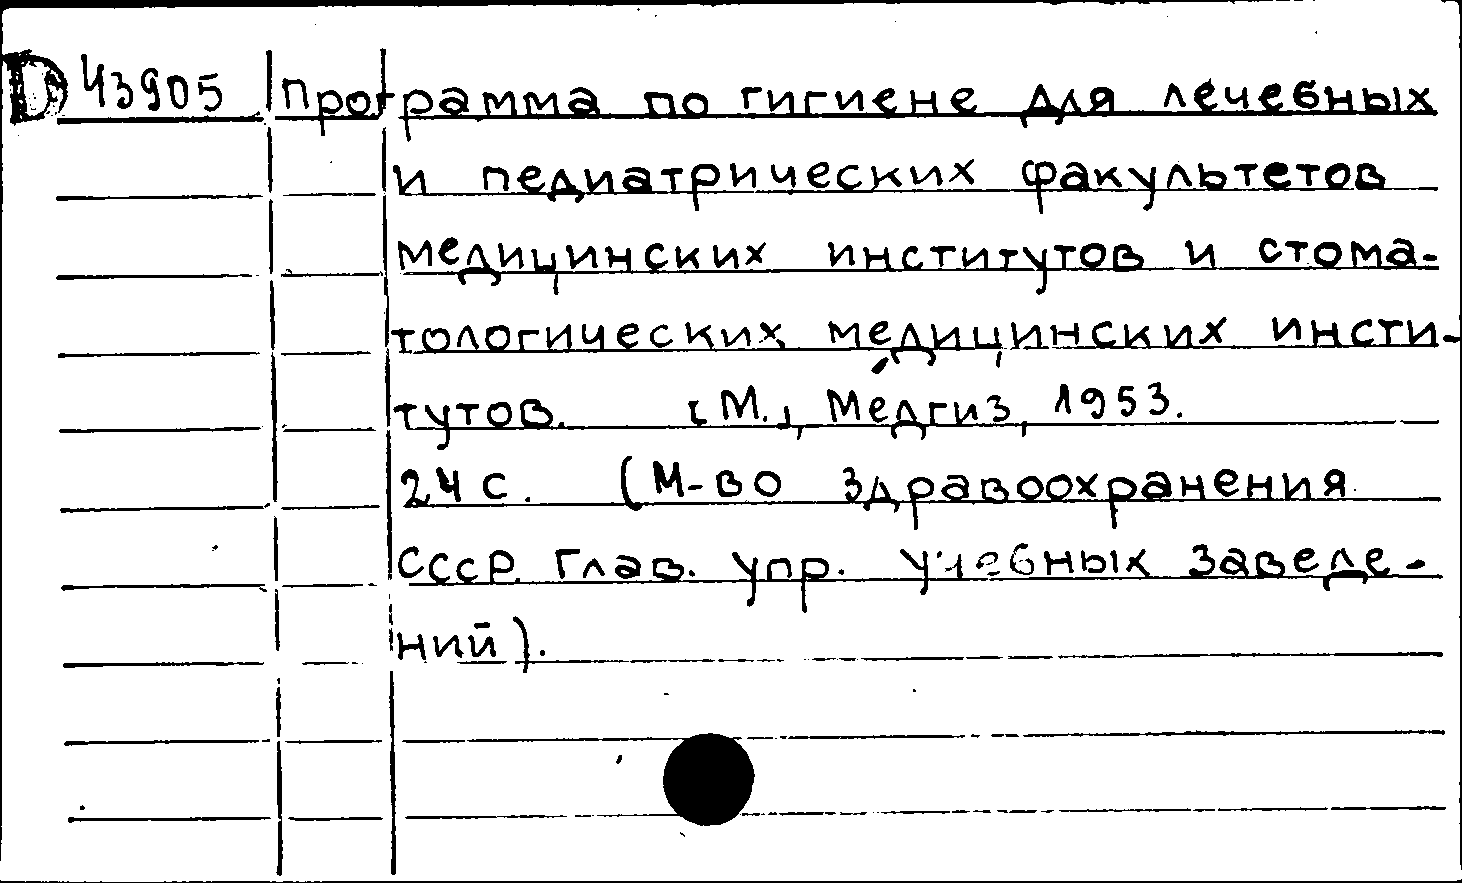 D 43905 Программа по гигиене для лечебных
и педиатрических факультетов
медицинских институтов и стома-
тологических медицинских инсти-
тутов. [М.], Медгиз, 1953.
24 с. (М-во здравоохранения
СССР. Глав. упр. учебных заведе-
ний).